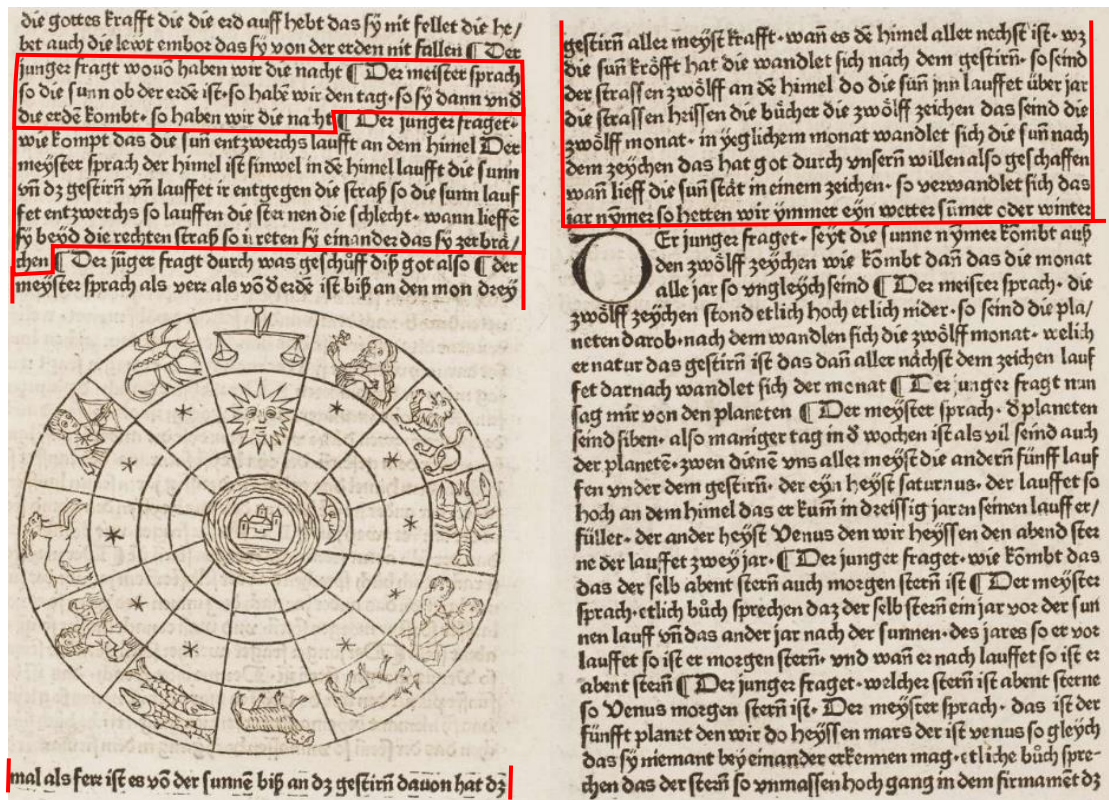 die gottes krafft die die erd auff hebt das sÿ nit fellet die he/
bet auch die lewt embor das sÿ von der erden nit fallen ¶ Der
junger fragt wouō haben wir die nacht ¶ Der meister sprach
so die sunn ob der erdē ist· so habē wir den tag· so sÿ dann vnd
die erdē kombt· so haben wir die nacht ¶ Der junger fraget·
wie kompt das die sun̄ entzwerchs laufft an dem himel Der
meÿster sprach der himel ist sinwel in dē himel laufft die sunn
vn̄ dz gestirn̄ vn̄ lauffet ir entgegen die straß so die sunn lauf
fet entzwerchs so lauffen die sternen die schlecht· wann lieffē
sÿ beÿd die rechten straß so irreten sÿ einander das sÿ zerbrä/
chen ¶ Der jūger fragt durch was geschüff diß got also ¶ der
meÿster sprach als verr als vō d̄ erdē ist biß an den mon dreÿ
mal als ferr ist es vō der sunnē biß an dz gestirn̄ dauon hat dz
gestirn̄ aller meÿst krafft· wan̄ es dē himel aller nechst ist· wz
die sun̄ kröfft hat die wandlet sich nach dem gestirn̄· so seind
der strassen zwölff an dē himel do die sun̄ jnn lauffet über jar
die strassen heissen die bücher die zwölff zeichen das seind die
zwölff monat· in ÿeglichem monat wandlet sich die sun̄ nach
dem zeÿchen das hat got durch vnsern̄ willen also geschaffen
wan̄ lieff die sun̄ stät in einem zeichen· so verwandlet sich das
jar nÿmer so hetten wir ÿmmer eÿn wetter sūmer oder winter
DEr junger fraget· seÿt die sunne nÿmer kōmbt auß
den zwölff zeÿchen wie kōmbt dan̄ das die monat
alle jar so vngleÿch seind ¶ Der meister sprach· die
zwölff zeÿchen stond etlich hoch etlich nider· so seind die pla/
neten darob· nach dem wandlen sich die zwölff monat· welich
er natur das gestirn̄ ist das dan̄ aller nächst dem zeichen lauf
fet darnach wandlet sich der monat ¶ Der junger fragt nun
sag mir von den planeten ¶ Der meÿster sprach· d̄ planeten
seind siben· also maniger tag in d̄ wochen ist als vil seind auch
der planetē· zwen dienē vns aller meÿst die andern̄ fünff lauf
fen vnder dem gestirn̄· der eÿn heÿst saturnus· der lauffet so
hoch an dem himel das er kum̄ in dreissig jaren seinen lauff er/
füllet· der ander heÿst Venus den wir heÿssen den abend ster
ne der lauffet zweÿ jar· ¶ Der junger fraget· wie kōmbt das
das der selb abent stern̄ auch morgen stern̄ ist ¶ Der meÿster
sprach· etlich bůch sprechen daz der selb stern̄ ein jar vor der sun
nen lauff vn̄ das ander jar nach der sunnen· des jares so er vor
lauffet so ist er morgen stern̄· vnd wan̄ er nach lauffet so ist er
abent stern̄ ¶ Der junger fraget· welcher stern̄ ist abent sterne
so Venus morgen stern̄ ist· Der meÿster sprach· das ist der
fünfft planet den wir do heÿssen mars der ist venus so gleÿch
das sÿ niemant beÿ einander erkennen mag· etliche bůch spre-
chen das der stern̄ so vnmassen hoch gang in dem firmamēt dz